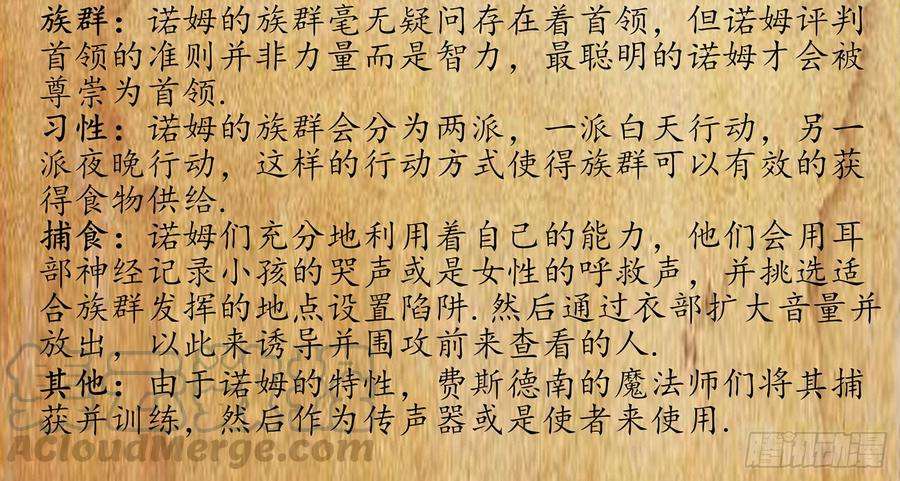 族群：诺姆的族群毫无疑问存在着首领，但诺姆评判
首领的准则并非力量而是智力，最聪明的诺姆才会被
尊崇为首领.
习性：诺姆的族群会分为两派，一派白天行动，另一
派夜晚行动，这样的行动方式使得族群可以有效的获
得食物供给.
捕食：诺姆们充分地利用着自己的能力，他们会用耳
部神经记录小孩的哭声或是女性的呼救声，并挑选适
合族群发挥的地点设置陷阱.然后通过衣部扩大音量并
放出，以此来诱导并围攻前来查看的人.
其他：由于诺姆的特性，费斯德南的魔法师们将其捕
获并训练，然后作为传声器或是使者来使用.
AcloudMerge.com
腾讯动漫